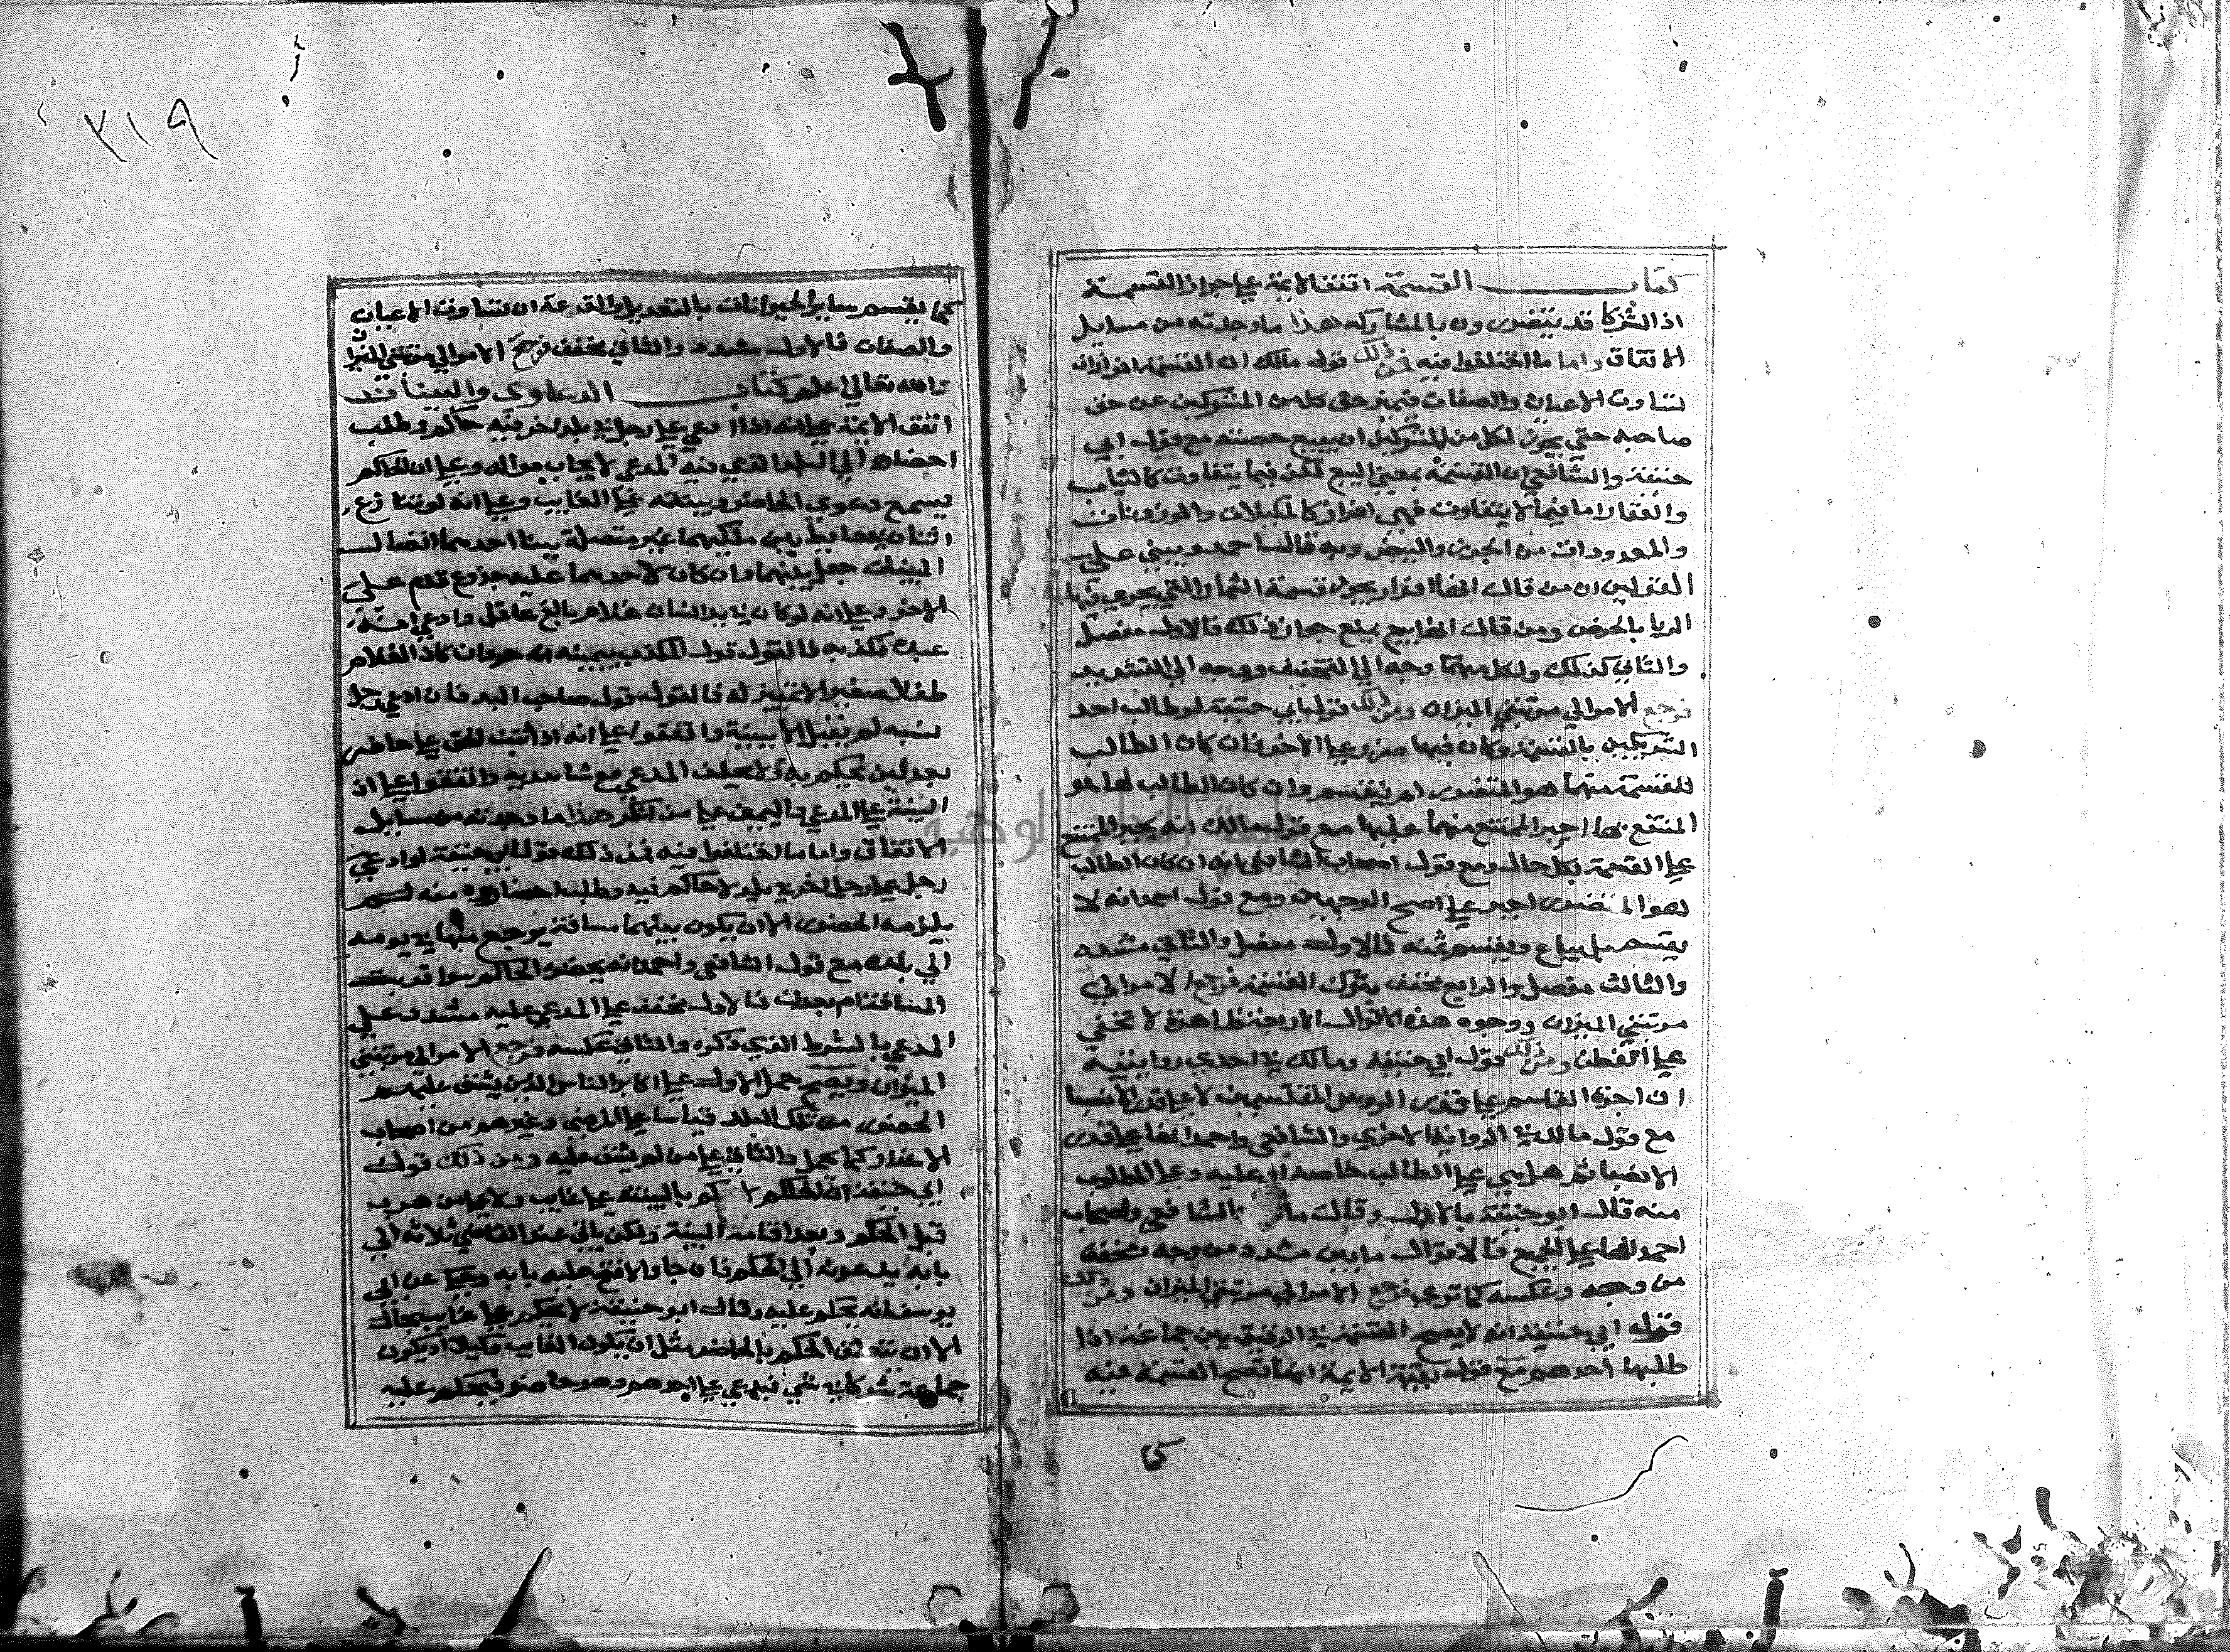 ٣١٩
كتاب القسمة اتفق الايمة عليا جواز القسمة
اذ الشركا قد يتضررون بالمشاركه هذا ما وجدته من مسايل
الاتفاق واما ما اختلفوا فيه فمن ذلك قول مالك ان القسمة افراز ان
تساوت الاعيان والصفات فيميز حق كل من الشريكين عن حق
صاحبه حتي يجوز لكل من الشريكين ان يبيع حصته مع قول ابي
حنيفة والشافعي ان القسمة بمعني البيع لكن فيما يتفاوت كالثياب
والعقار اما فيما لا يتفاوت فهي افراز كالمكيلات والموزونات
والمعدودات من الجوز والبيض وبه قال احمد ويبني علي
القولين ان من قال انها افراز يجوز قسمة الثمار التي يجري فيها
الربا بالخرص ومن قال انها بيع يمنع جواز ذلك فالاول مفصل
والثاني كذلك ولكل منهما وجه الي التخفيف ووجه الي التشديد
فرجع الامر الي مرتبتي الميزان ومن ذلك قول ابي حنيفة لو طالب احد
الشريكين بالقسمة وكان فيها ضرر عليا الاخر فان كان الطالب
للقسمة منهما هو المتضرر لم يقسم وان كان الطالب لها هو
المنتفع بها اجبر الممتنع منهما عليها مع قول مالك انه يجبر الممتنع
عليا القسمة بكل حال ومع قول اصحاب الشافعي انه ان كان الطالب
هو المتضرر اجبر عليا اصح الوجهين ومع قول احمد انه لا
يقسم بل يباع ويقسم ثمنه فالاول مفصل والثاني مشدد
والثالث مفصل والرابع مخفف بترك القسمة فرجع الامر الي
مرتبتي الميزان ووجوه هذه الاقوال الاربعة ظاهرة لا تخفي
عليا الفطن ومن ذلك قول ابي حنيفة ومالك في احدي روايتيه
ان اجرة القاسم عليا قدر الروس المقتسمين لا عليا قدر الانصبا
مع قول مالك في الرواية الاخري والشافعي واحمد انها عليا قدر
الانصبا ثم هل هي عليا الطالب خاصة او عليه وعليا المطلوب
منه قال ابو حنيفة بالاول وقال مالك والشافعي واصحاب
احمد انها عليا الجميع فالاقوال ما بين مشدد من وجه مخفف
من وجه وعكسه كما تري فرجع الامر الي مرتبتي الميزان ومن ذلك
قول ابي حنيفة انه لا يصح القسمة في الرقيق بين جماعة اذا
طلبها احدهم مع قول بقية الايمة انها تصح القسمة فيه
كما
كما يقسم ساير الحيوانات بالتعديل والقرعة ان تساوت الاعيان
والصفات فالاول مشدد والثاني مخفف فرجع الامر الي مرتبتي الميزان
والله تعالي اعلم كتاب الدعاوي والبينات
اتفق الايمة عليا انه اذا ادعي عليا رجل في بلد اخر فيه حاكم وطلب
احضاره الي البلد الذي فيه المدعي لا يجاب سواله وعليا ان الحاكم
يسمع دعوي الحاضر وبينته عليا الغايب وعليا انه لو تنازع
اثنان في حايط بين ملكيهما غير متصل ببنا احدهما اتصال
البنيان جعل بينهما وان كان لاحدهما عليه جذوع قدم علي
الاخر وعليا انه لو كان في يد انسان غلام بالغ عاقل وادعي انه
عبده فكذبه فالقول قول المكذب بيمينه انه حر وان كان الغلام
طفلا صغيرا لا تمييز له فالقول قول صاحب اليد فان ادعي رجل
نسبه لم يقبل الا ببينة واتفقوا عليا انه اذا ثبت الحق عليا حاضر
بعدلين يحكم به ولا يحلف المدعي مع شاهديه واتفقوا عليا ان
البينة عليا المدعي واليمين عليا من انكر هذا ما وجدته من مسايل
الاتفاق واما ما اختلفوا فيه فمن ذلك قول ابي حنيفة لو ادعي
رجل عليا رجل اخر في بلد لا حاكم فيه وطلب احضاره منه لم
يلزمه الحضور الا ان يكون بينهما مسافة يرجع منها في يومه
الي بلده مع قول الشافعي واحمد انه يحضره الحاكم سوا قربت
المسافة ام بعدت فالاول مخفف عليا المدعي عليه مشدد علي
المدعي بالشرط الذي ذكره والثاني عكسه فرجع الامر الي مرتبتي
الميزان ويصح حمل الاول عليا اكابر الناس الذين يشق عليهم
الحضور من تلك البلد قياسا عليا المرضي وغيرهم من اصحاب
الاعذار كما يحمل والثاني عليا من لم يشق عليه ومن ذلك قول
ابي حنيفة ان الحاكم لا يحكم بالبينة عليا غايب ولا عليا من هرب
قبل الحكم وبعد اقامة البينة ولكن ياتي عند القاضي ثلاثة الي
بابه يدعونه الي الحكم فان جا والا فتح عليه بابه وحكي عن ابي
يوسف انه يحكم عليه وقال ابو حنيفة لا يحكم عليا غايب بحال
الا ان يتعلق الحكم بالحاضر مثل ان يكون الغايب وكيلا او يكون
جماعة شركا في شي فيدعي عليا احدهم وهو حاضر فيحكم عليه